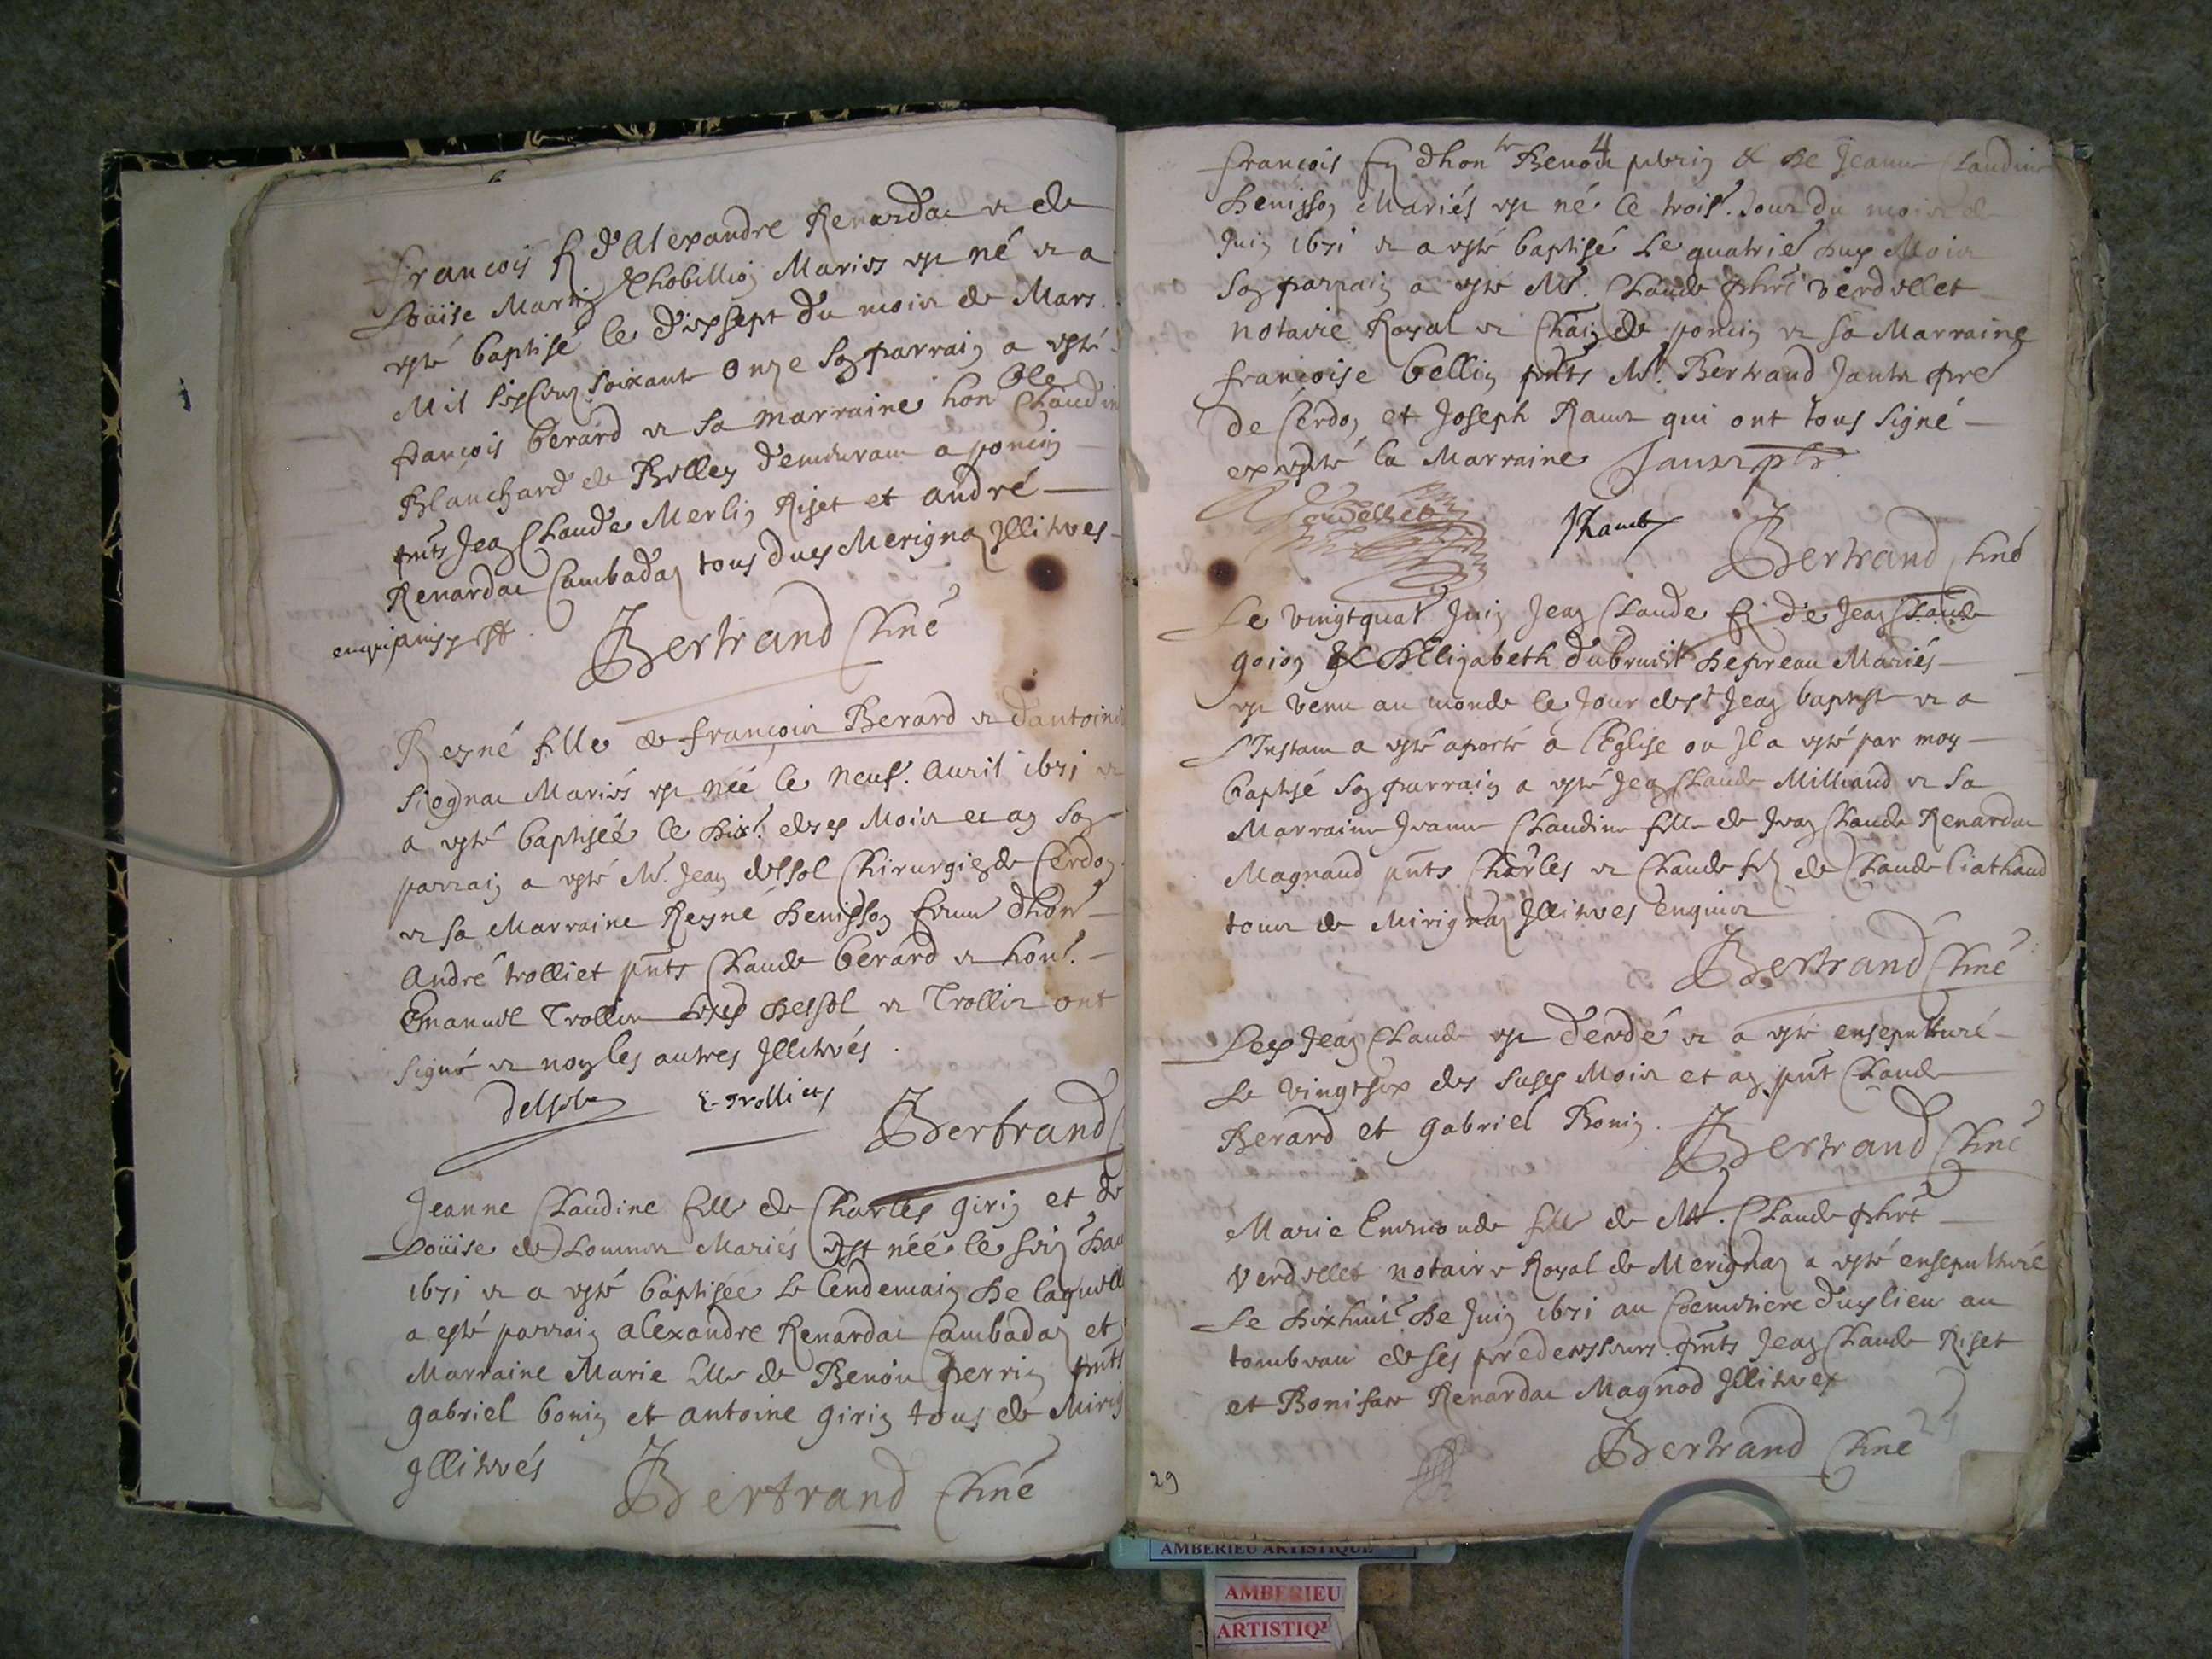 François fz d'Alexandre Renardat et de
Loüise Martin Thobillion Mariés est né et a
esté baptisé le dixsept du mois de Mars
Mil six cens soixante onze son parrain a esté
françois berard et sa marraine hon ble Claudine
Blanchard de Belley demeurant a poncin
pnts Jean Claude Merlin Riset et andré
Renardat Cambadaz tous dud Merignaz Illitères
enquis
Bertrand Curé
Reyné fille de françois Berard et d'antoine
Mariés est née le neuf. Avril 1671 et
a esté baptiséé le dix. desd Mois et an son
parrain a esté Mr. Jean delsol Chirurgien de Cerdon
et sa Marraine Reyné Denisson femme d'hon
André trolliet pnts Claude berard et hon.
Emanuel Trolliet lesd delsol et Trolliet ont
signé et non les autres Illitérés.
delsol E. Trolliet
Bertrand
Jeanne Claudine fille de Charles girin et de
Loüise de Mariés est néé le
1671 et a esté baptisée le lendemain de laquelle
a esté parrain alexandre Renardat Cambadaz et
Marraine Marie fille de Benoit perrin pnts
gabriel bonin et antoine girin tous de
Illitérés
Bertrand Curé
4
françois fz d'hon Benoit & de Jeanne Claudine
Denisson Mariés est né le trois. Jour du mois de
Juin 1671 et a esté baptisé le quatrie dud Mois
Son parrain a esté Mr. Claude phrt Verdellet
notaire Royal et de poncin et sa Marraine
françoise bellin pnts Mr. Bertrand Jantet pre
de Cerdon et Joseph Ramb qui ont tous signé
excepté la Marraine Jantet
Verdellet
JRamb
Bertrand Curé
Le vingtquat Juin Jean Claude fz de Jean Claude
goion & d'Elizabeth dubreuil Mariés
est venu au monde le Jour de st Jean baptiste et a
L'Instant a esté aporté a l'Eglise ou Il a esté par moy
baptisé Son parrain a esté Jean Claude Milliand et sa
Marraine Jeanne Claudine fille de Jean Claude Renardat
Magnaud pnts Charles et Claude fz de Claude liathaud
tous de Mirignaz Illitères enquis
Bertrand Curé
Led Jean Claude est dendé et a esté ensepulturé
Le vingtsix des susd Mois et an pnt Claude
Berard et gabriel Bonin.
Bertrand Curé
Marie Emmonde fille de Mr. Claude phrt
Verdellet notaire Royal de Merignaz a esté ensepulturé
Le dixhuit de Juin 1671 au Coemetiere dud lieu au
tombeau de ses predecesseurs pnts Jean Claude Riset
et Boniface Renardat Magnod Illitères
Bertrand Curé
29
AMBERIEU ARTISTIQUE
AMBERIEU
ARTISTIQU